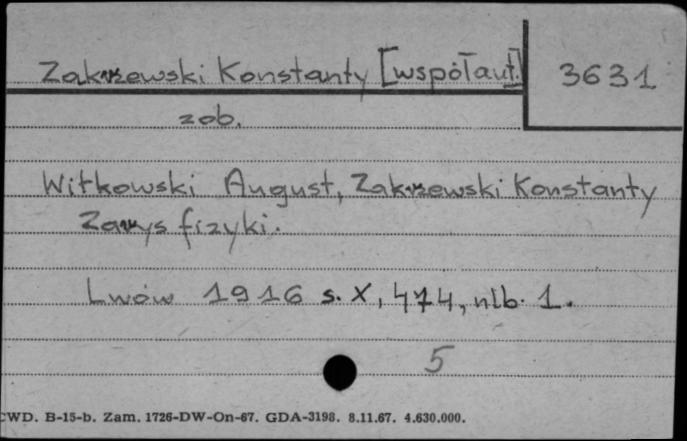 Zakrzewski Konstanty [współaut.] 3631
zob.
Witkowski August, Zakrzewski Konstanty
Zarys fizyki.
Lwów 1916 s. X, 474, nlb. 1.
5
CWD. B-15-b. Zam. 1726-DW-On-67. GDA-3198. 8.11.67. 4.630.000.